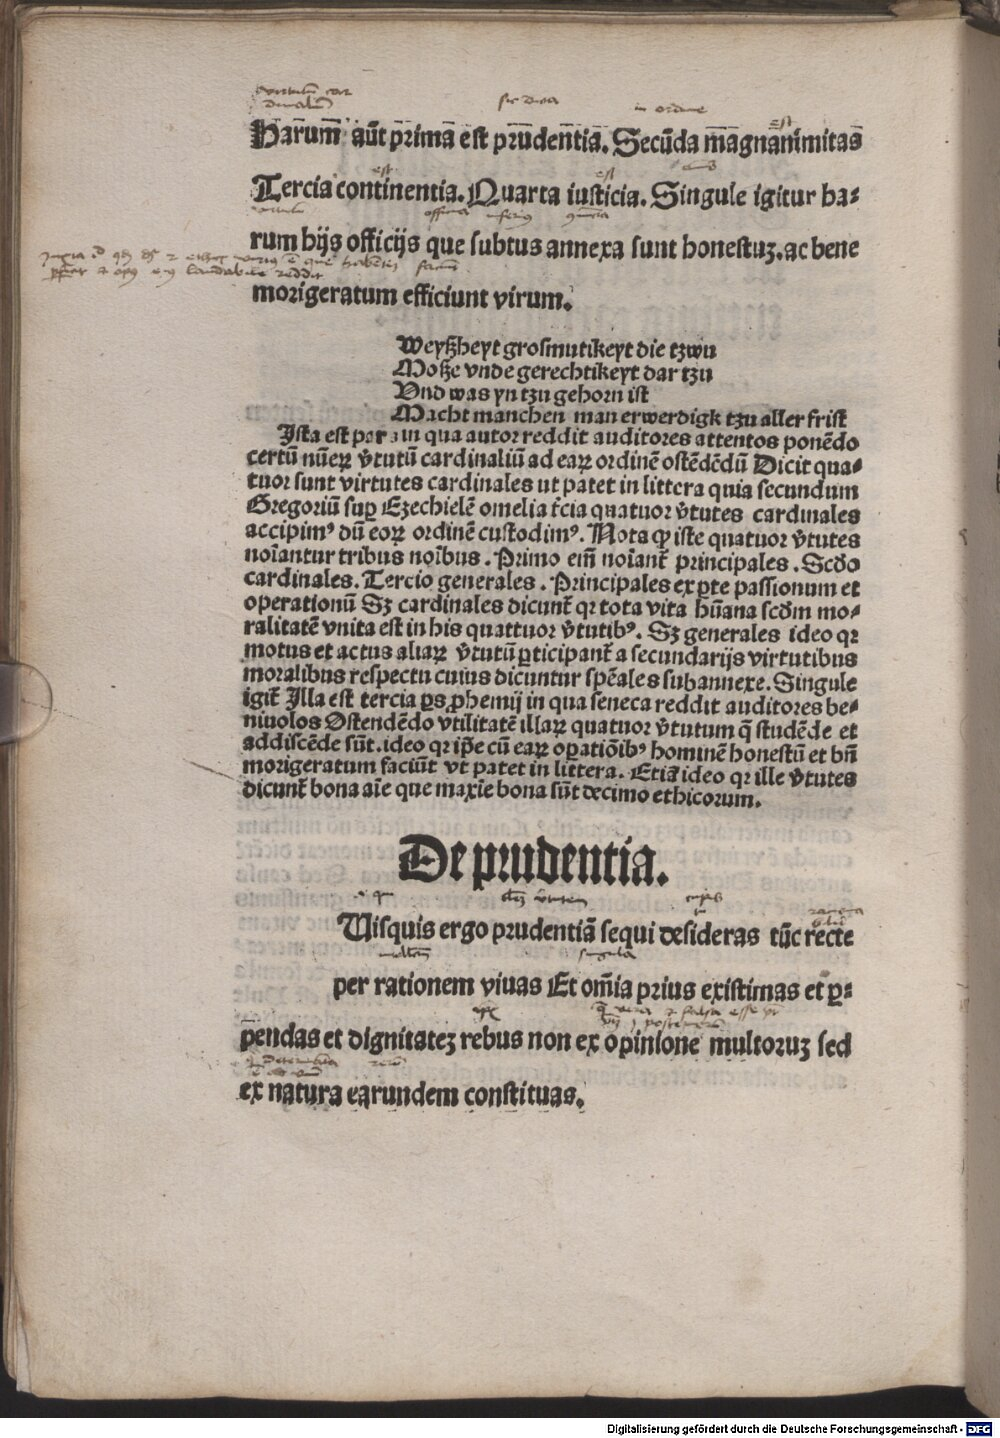 Harum aūt prima est prudentia. Secūda magnanimitas
Tercia continentia. Quarta iusticia. Singule igitur ha-
rum hijs officijs que subtus annexa sunt honestuꝫ. ac bene
morigeratum efficiunt virum.
Weyßheyt grosmutikeyt die tzwu
Moße vnde gerechtikeyt dar tzu
Vnd was yn tzu gehorn ist
Macht manchen man erwerdigk tzu aller frist
Ista est pars in qua autor reddit auditores attentos ponēdo
certū nūeꝝ v̄tutū cardinaliū ad eaꝝ ordinē ostēdēdū Dicit qua-
tuor sunt virtutes cardinales ut patet in littera quia secundum
Gregoriū suꝑ Ezechielē omelia t̄cia quatuor v̄tutes cardinales
accipimꝰ dū eoꝝ ordinē custodimꝰ. Nota ꝙ iste quatuor v̄tutes
noīantur tribus noībus. Primo em̄ noīant̄ principales. Scd̄o
cardinales. Tercio generales. Principales ex ꝑte passionum et
operationū Sꝫ cardinales dicunt̄ qꝛ tota vita hūana scd̄m mo-
ralitatē vnita est in his quattuor v̄tutibꝰ. Sꝫ generales ideo qꝛ
motus et actus aliaꝝ v̄tutū ꝑticipant̄ a secundarijs virtutibus
moralibus respectu cuius dicuntur spēales subannexe. Singule
igit̄ Illa est tercia ꝑs ꝓhemij in qua seneca reddit auditores be-
niuolos Ostendēdo vtilitatē illaꝝ quatuor v̄tutum q̄ studēde et
addiscēde sūt. ideo qꝛ ip̄e cū eaꝝ oꝑatiōibꝰ hominē honestū et bn̄
morigeratum faciūt vt patet in littera. Etiā ideo qꝛ ille v̄tutes
dicunt̄ bona aīe que maxīe bona sūt decimo ethicorum.
De prudentia.
Uisquis ergo prudentiā sequi desideras tūc recte
per rationem viuas Et om̄ia prius existimas et ꝑ-
pendas et dignitateꝫ rebus non ex opinione multoruꝫ sed
ex natura earundem constituas.
Digitalisierung gefördert durch die Deutsche Forschungsgemeinschaft - DFG